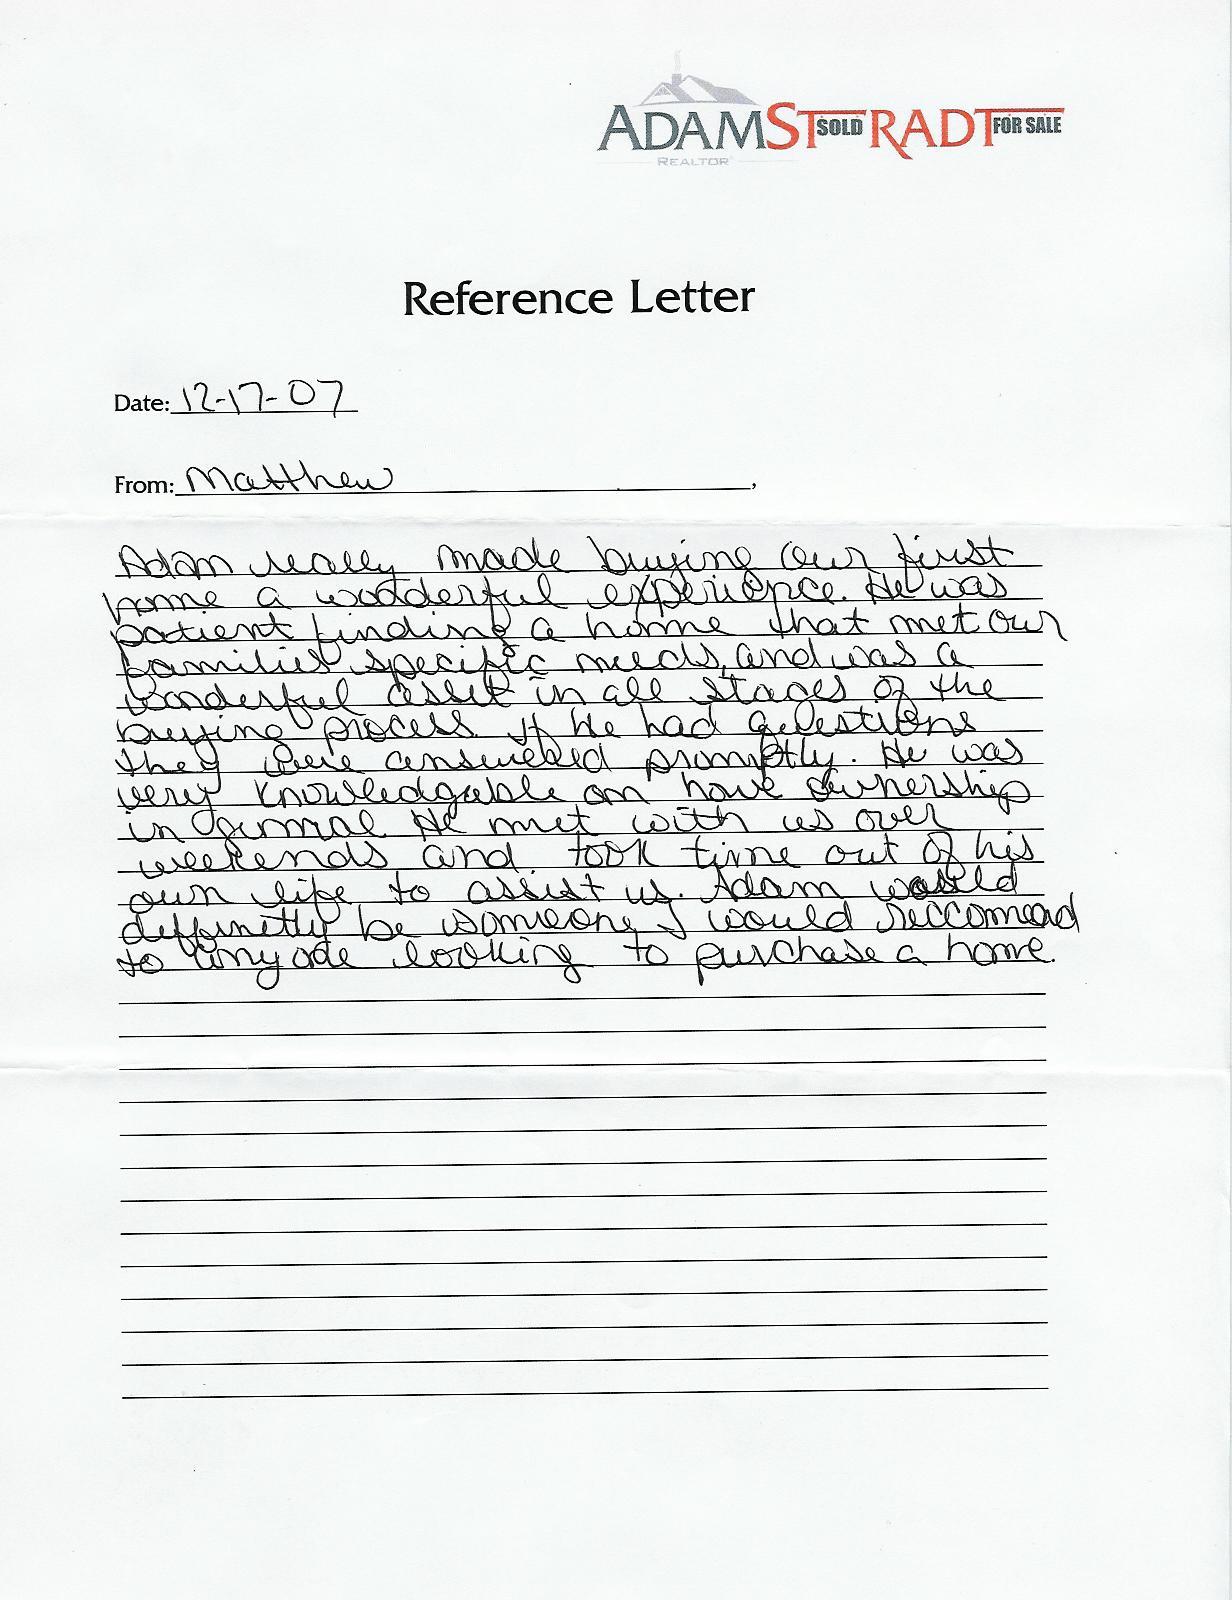 ADAM STRADT
SOLD
FOR SALE
REALTOR®
Reference Letter
Date: 12-17-07
From: Matthew ,
Adam really made buying our first
home a wodderful experience. He was
patient finding a home that met our
families specific needs, and was a
wonderful asset in all stages of the
buying process. If He had questions
they were answered promptly. He was
very knowledgable on home ownership
in genral He met with us over
weekends and took time out of his
own life to assist us. Adam would
deffinetly be someone I would reccomend
to anyone looking to purchase a home.